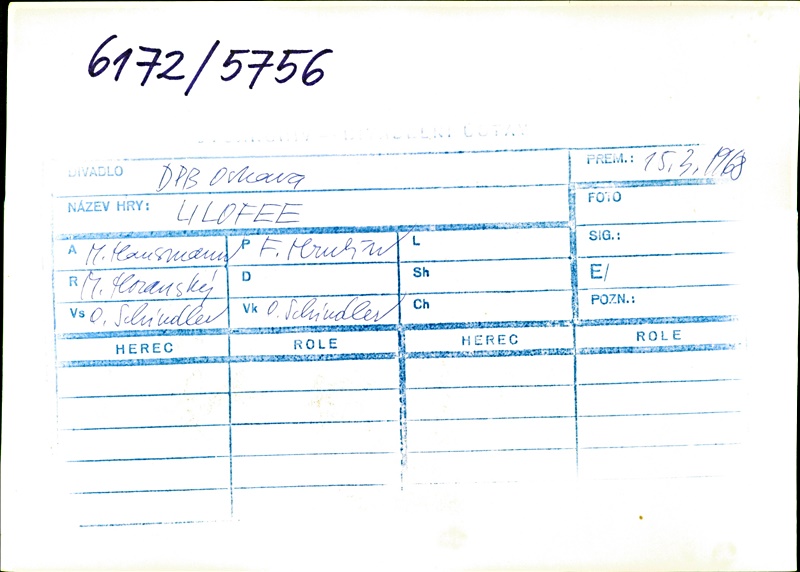 6172/5756
DIVADLO DPB Ostrava PREM.: 15.3.1968
NÁZEV HRY: LILOFEE FOTO
A M. Hausmann P F. Hrubín L SIG.:
R M. Horanský D Sh E/
Vs O. Schindler Vk O. Schindler Ch POZN.:
HEREC ROLE HEREC ROLE